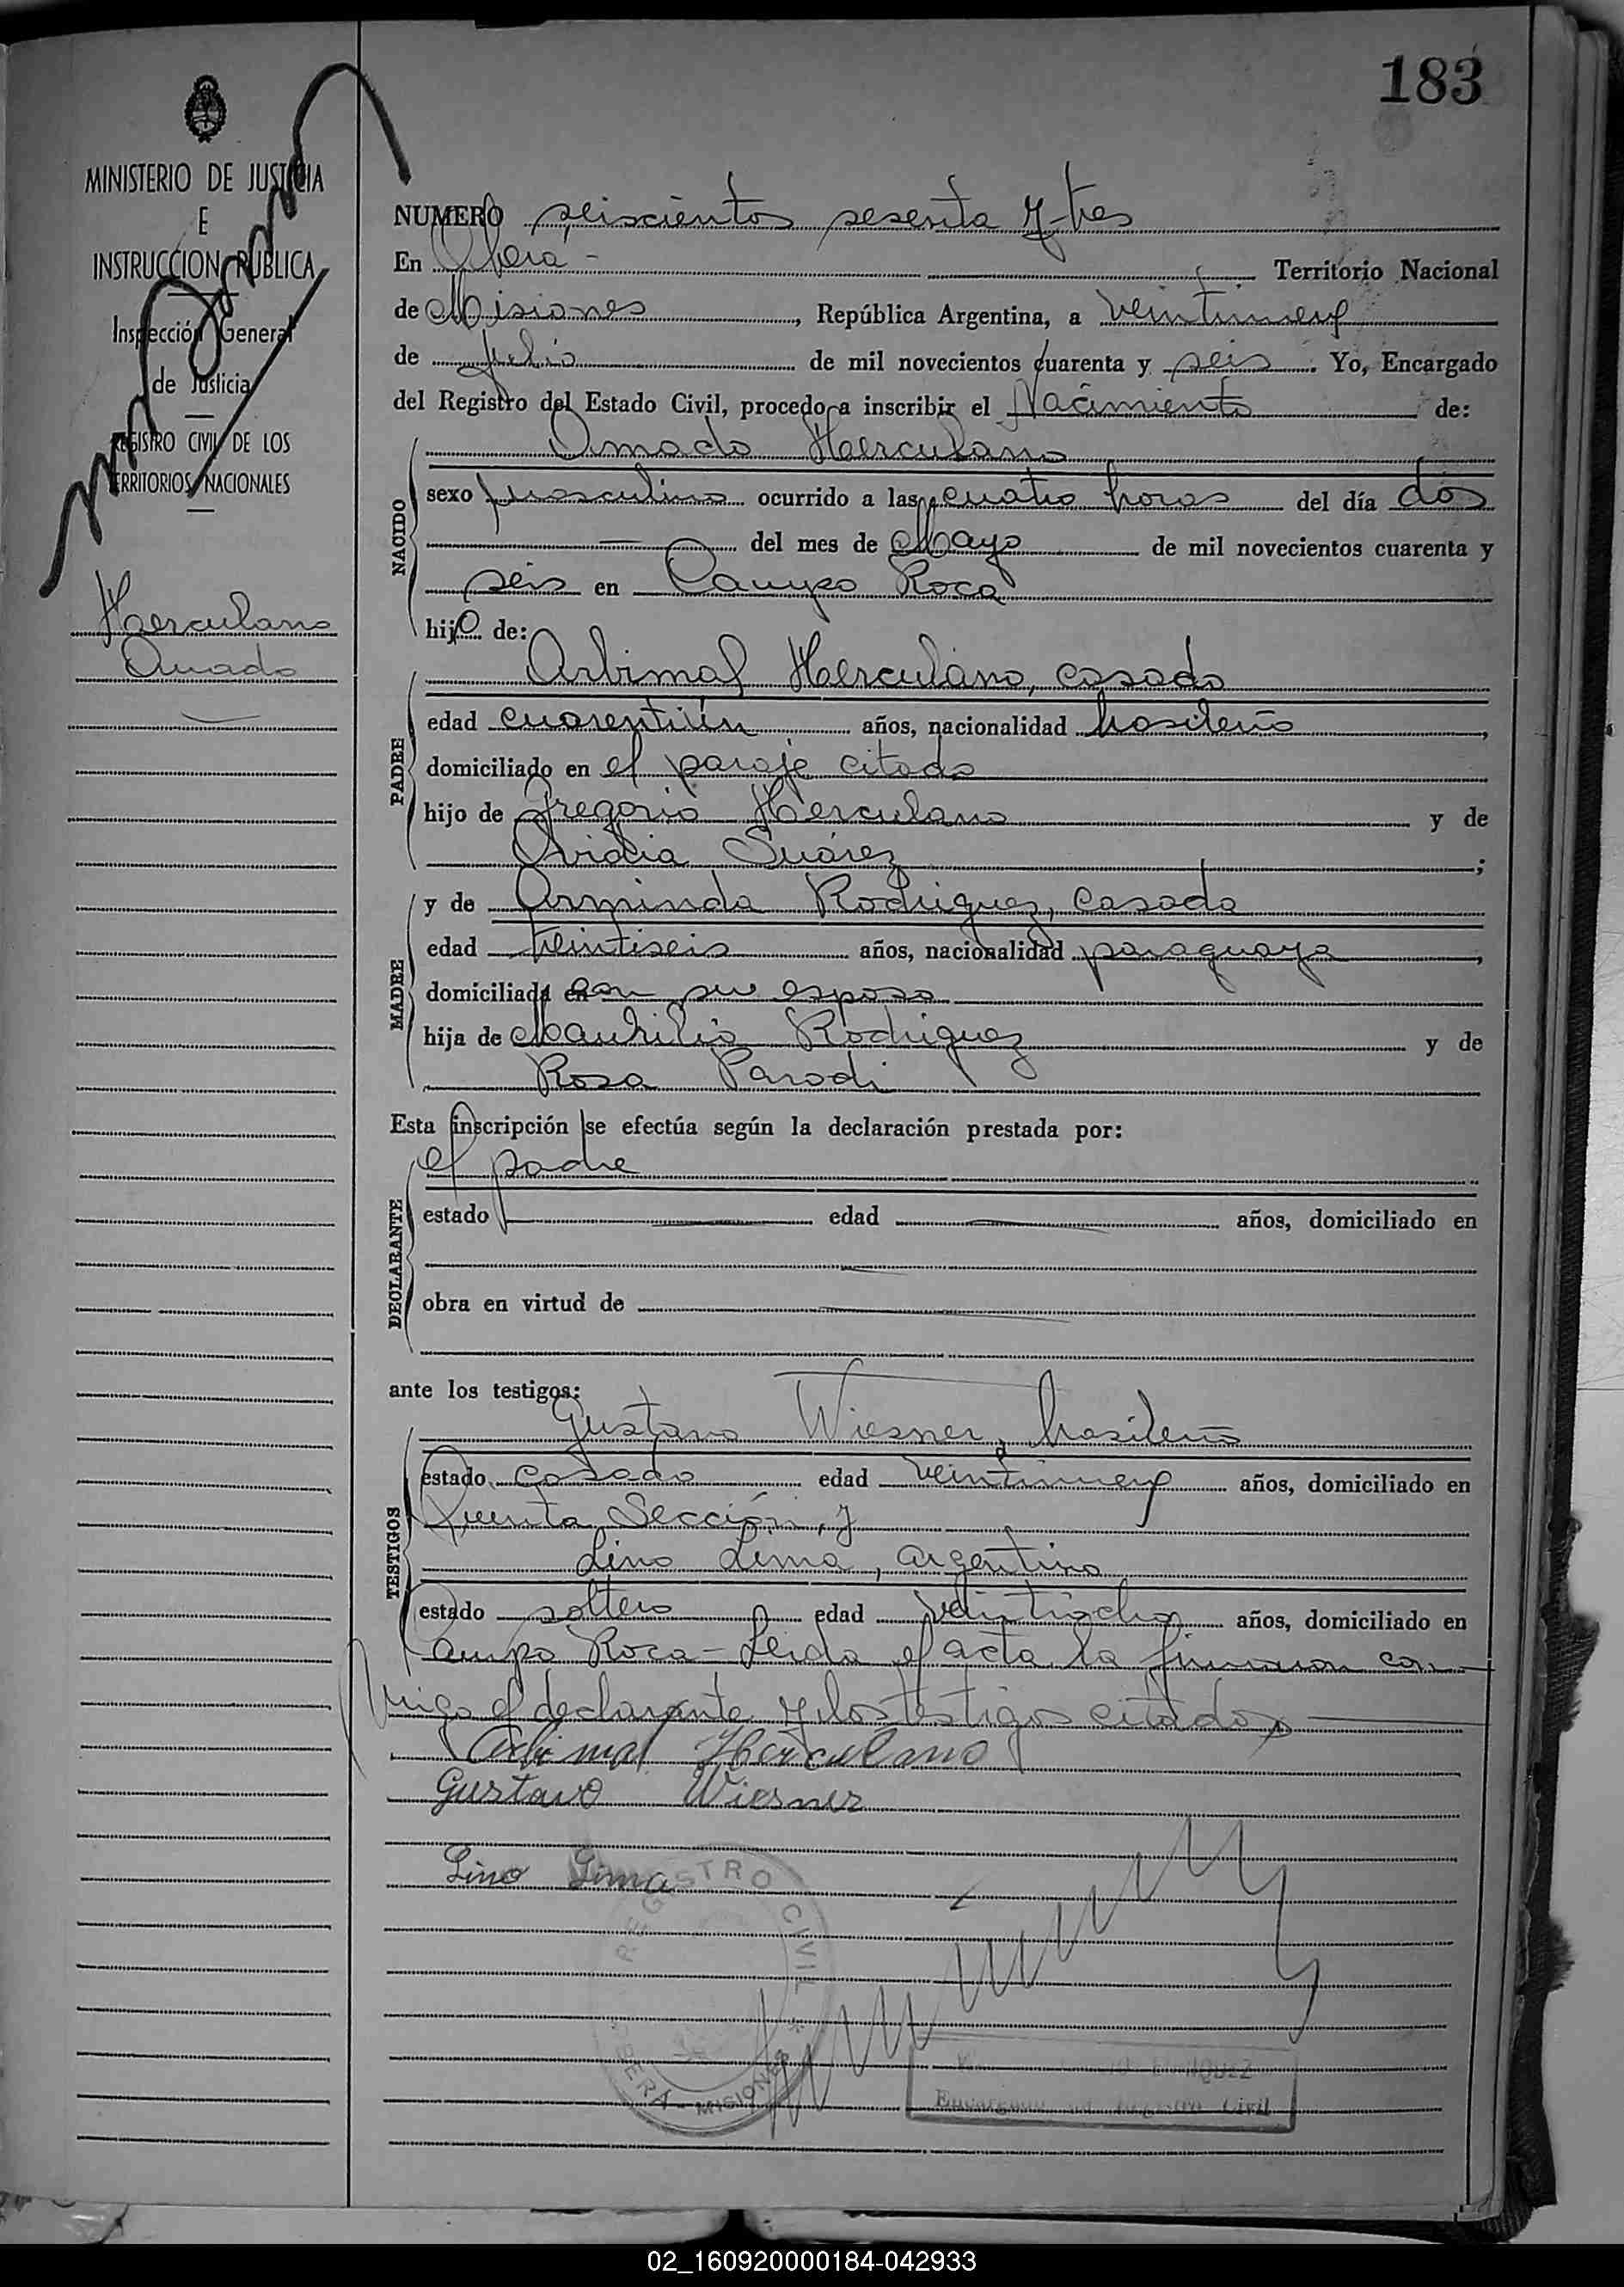 183
MINISTERIO DE JUSTICIA
E
INSTRUCCION PUBLICA
Inspección General
de Justicia
REGISTRO CIVIL DE LOS
TERRITORIOS NACIONALES
Herculano
Amado
NUMERO seiscientos sesenta y tres
En Oberá - Territorio Nacional
de Misiones, República Argentina, a veintinueve
de Julio de mil novecientos cuarenta y seis. Yo, Encargado
del Registro del Estado Civil, procedo a inscribir el Nacimiento de:
NACIDO
Amado Herculano
sexo masculino ocurrido a las cuatro horas del día dos
del mes de Mayo de mil novecientos cuarenta y
seis en Campo Roca
hijo de:
PADRE
Arbimal Herculano, casado
edad cuarentiún años, nacionalidad brasileño,
domiciliado en el paraje citado
hijo de Gregorio Herculano y de
Suárez;
MADRE
y de Arminda Rodriguez, casada
edad treintiseis años, nacionalidad paraguaya,
domiciliada en con su esposo
hija de Maurilio Rodriguez y de
Rosa Parodi
Esta inscripción se efectúa según la declaración prestada por:
DECLARANTE
el padre
estado edad años, domiciliado en
obra en virtud de
ante los testigos:
TESTIGOS
Gustavo Wiesner, brasileño
estado casado edad veintinueve años, domiciliado en
Quinta Sección, y
Lino Lima, argentino
estado soltero edad veintiocho años, domiciliado en
Campo Roca - Leida el acta la firmaron con-
migo el declarante y los testigos citados
Arbimal Herculano
Gustavo Wiesner
Lino Lima
REGISTRO CIVIL
OBERA - MISIONES
Encargado del Registro Civil
02_160920000184-042933